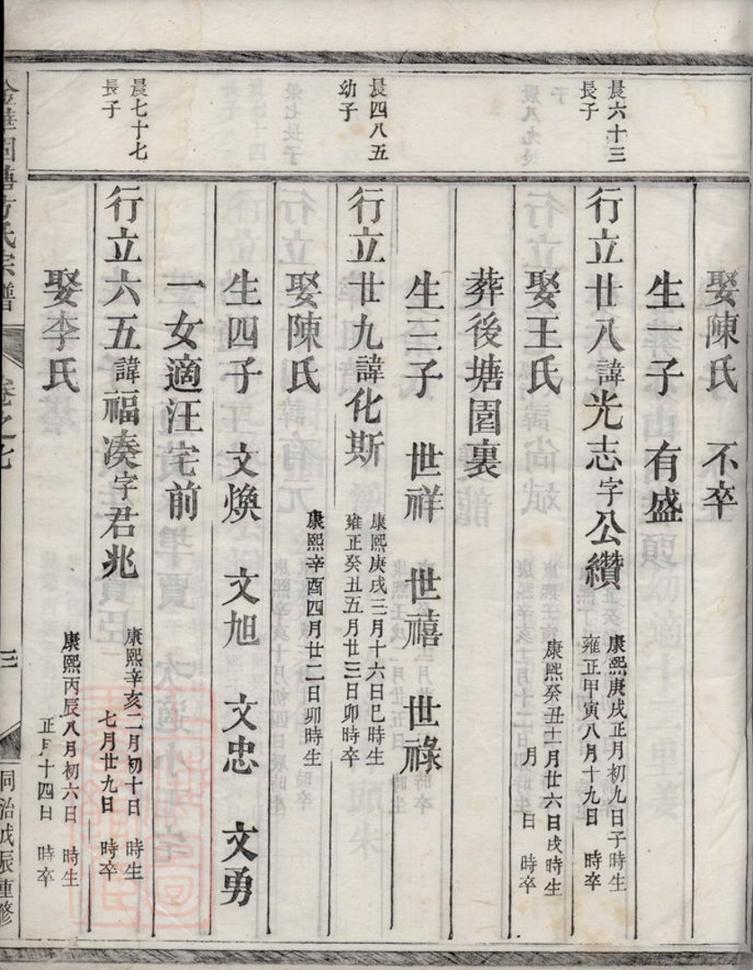 娶陳氏 不卒
生一子 有盛
晨六十三
長子
行立廿八諱光志字公纘
康熙庚戌正月初九日子時生
雍正甲寅八月十九日 時卒
娶王氏
康熙癸丑十一月廿六日戌時生
月 日 時卒
葬後塘園裏
生三子 世祥 世禧 世祿
晨四八五
幼子
行立廿九諱化斯
康熙庚戌三月十六日巳時生
雍正癸丑五月廿三日卯時卒
娶陳氏
康熙辛酉四月廿二日卯時生
生四子 文煥 文旭 文忠 文勇
一女適汪宅前
晨七十七
長子
行立六五諱福湊字君兆
康熙辛亥二月初十日 時生
七月廿九日 時卒
娶李氏
康熙丙辰八月初六日 時生
正月十四日 時卒
方氏宗譜 卷之七 三 同治戊辰重修